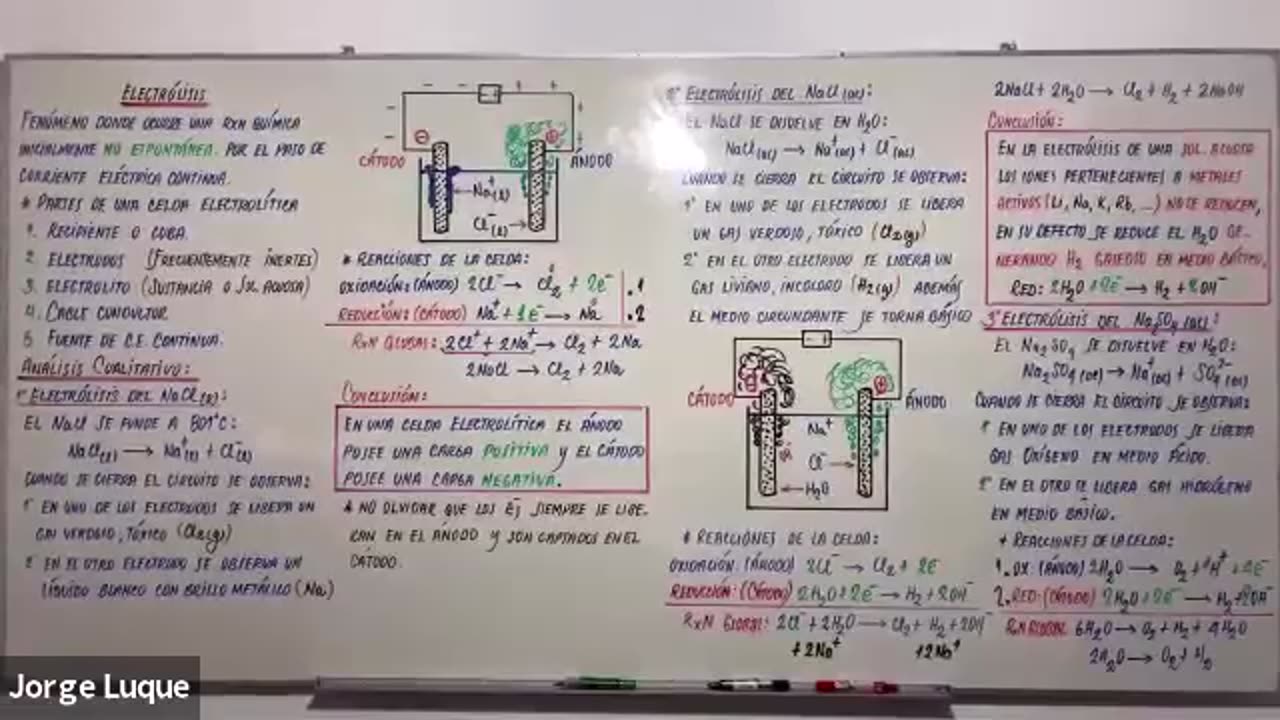 ELECTRÓLISIS
FENÓMENO DONDE OCURRE UNA RXN QUÍMICA
INICIALMENTE NO ESPONTÁNEA. POR EL PASO DE
CORRIENTE ELÉCTRICA CONTINUA.
* PARTES DE UNA CELDA ELECTROLÍTICA
1. RECIPIENTE O CUBA.
2. ELECTRODOS (FRECUENTEMENTE INERTES)
3. ELECTROLITO (SUSTANCIA O SOL ACUOSA)
4. CABLE CONDUCTOR
5. FUENTE DE C.E. CONTINUA.
ANÁLISIS CUALITATIVO:
1° ELECTRÓLISIS DEL NaCl(l):
EL NaCl SE FUNDE A 801°C:
NaCl(l) → Na⁺(l) + Cl⁻(l)
CUANDO SE CIERRA EL CIRCUITO SE OBSERVA:
1° EN UNO DE LOS ELECTRODOS SE LIBERA UN
GAS VERDOSO, TÓXICO (Cl₂(g))
2° EN EL OTRO ELECTRODO SE OBSERVA UN
LÍQUIDO BLANCO CON BRILLO METÁLICO (Na)
− − − + + +
− +
− +
⊖ ⊕
CÁTODO ÁNODO
Na⁺(l)
Cl⁻(l)
* REACCIONES DE LA CELDA:
OXIDACIÓN: (ÁNODO) 2Cl⁻ → Cl₂ + 2e⁻ .1
REDUCCIÓN: (CÁTODO) Na⁺ + 1e⁻ → Na .2
RXN GLOBAL: 2Cl⁻ + 2Na⁺ → Cl₂ + 2Na
2NaCl → Cl₂ + 2Na
CONCLUSIÓN:
EN UNA CELDA ELECTROLÍTICA EL ÁNODO
POSEE UNA CARGA POSITIVA Y EL CÁTODO
POSEE UNA CARGA NEGATIVA.
* NO OLVIDAR QUE LOS e⁻ SIEMPRE SE LIBE-
RAN EN EL ÁNODO Y SON CAPTADOS EN EL
CÁTODO.
2° ELECTRÓLISIS DEL NaCl(ac):
EL NaCl SE DISUELVE EN H₂O:
NaCl(ac) → Na⁺(ac) + Cl⁻(ac)
CUANDO SE CIERRA EL CIRCUITO SE OBSERVA:
1° EN UNO DE LOS ELECTRODOS SE LIBERA
UN GAS VERDOSO, TÓXICO (Cl₂(g))
2° EN EL OTRO ELECTRODO SE LIBERA UN
GAS LIVIANO, INCOLORO (H₂(g)) ADEMÁS
EL MEDIO CIRCUNDANTE SE TORNA BÁSICO
CÁTODO ÁNODO
Na⁺
Cl⁻
H₂O
* REACCIONES DE LA CELDA:
OXIDACIÓN: (ÁNODO) 2Cl⁻ → Cl₂ + 2e⁻
REDUCCIÓN: (CÁTODO) 2H₂O + 2e⁻ → H₂ + 2OH⁻
RXN GLOBAL: 2Cl⁻ + 2H₂O → Cl₂ + H₂ + 2OH⁻
+2Na⁺ +2Na⁺
2NaCl + 2H₂O → Cl₂ + H₂ + 2NaOH
CONCLUSIÓN:
EN LA ELECTRÓLISIS DE UNA SOL. ACUOSA
LOS IONES PERTENECIENTES A METALES
ACTIVOS (Li, Na, K, Rb, ...) NO SE REDUCEN,
EN SU DEFECTO SE REDUCE EL H₂O GE-
NERANDO H₂ GASEOSO EN MEDIO BÁSICO.
RED: 2H₂O + 2e⁻ → H₂ + 2OH⁻
3° ELECTRÓLISIS DEL Na₂SO₄(ac):
EL Na₂SO₄ SE DISUELVE EN H₂O:
Na₂SO₄(ac) → Na⁺(ac) + SO₄²⁻(ac)
CUANDO SE CIERRA EL CIRCUITO SE OBSERVA:
1° EN UNO DE LOS ELECTRODOS SE LIBERA
GAS OXÍGENO EN MEDIO ÁCIDO.
2° EN EL OTRO SE LIBERA GAS HIDRÓGENO
EN MEDIO BÁSICO.
* REACCIONES DE LA CELDA:
1. OX: (ÁNODO) 2H₂O → O₂ + 4H⁺ + 4e⁻
2. RED: (CÁTODO) 2H₂O + 2e⁻ → H₂ + 2OH⁻
RXN GLOBAL: 6H₂O → O₂ + H₂ + 4H₂O
2H₂O → O₂ +
Jorge Luque